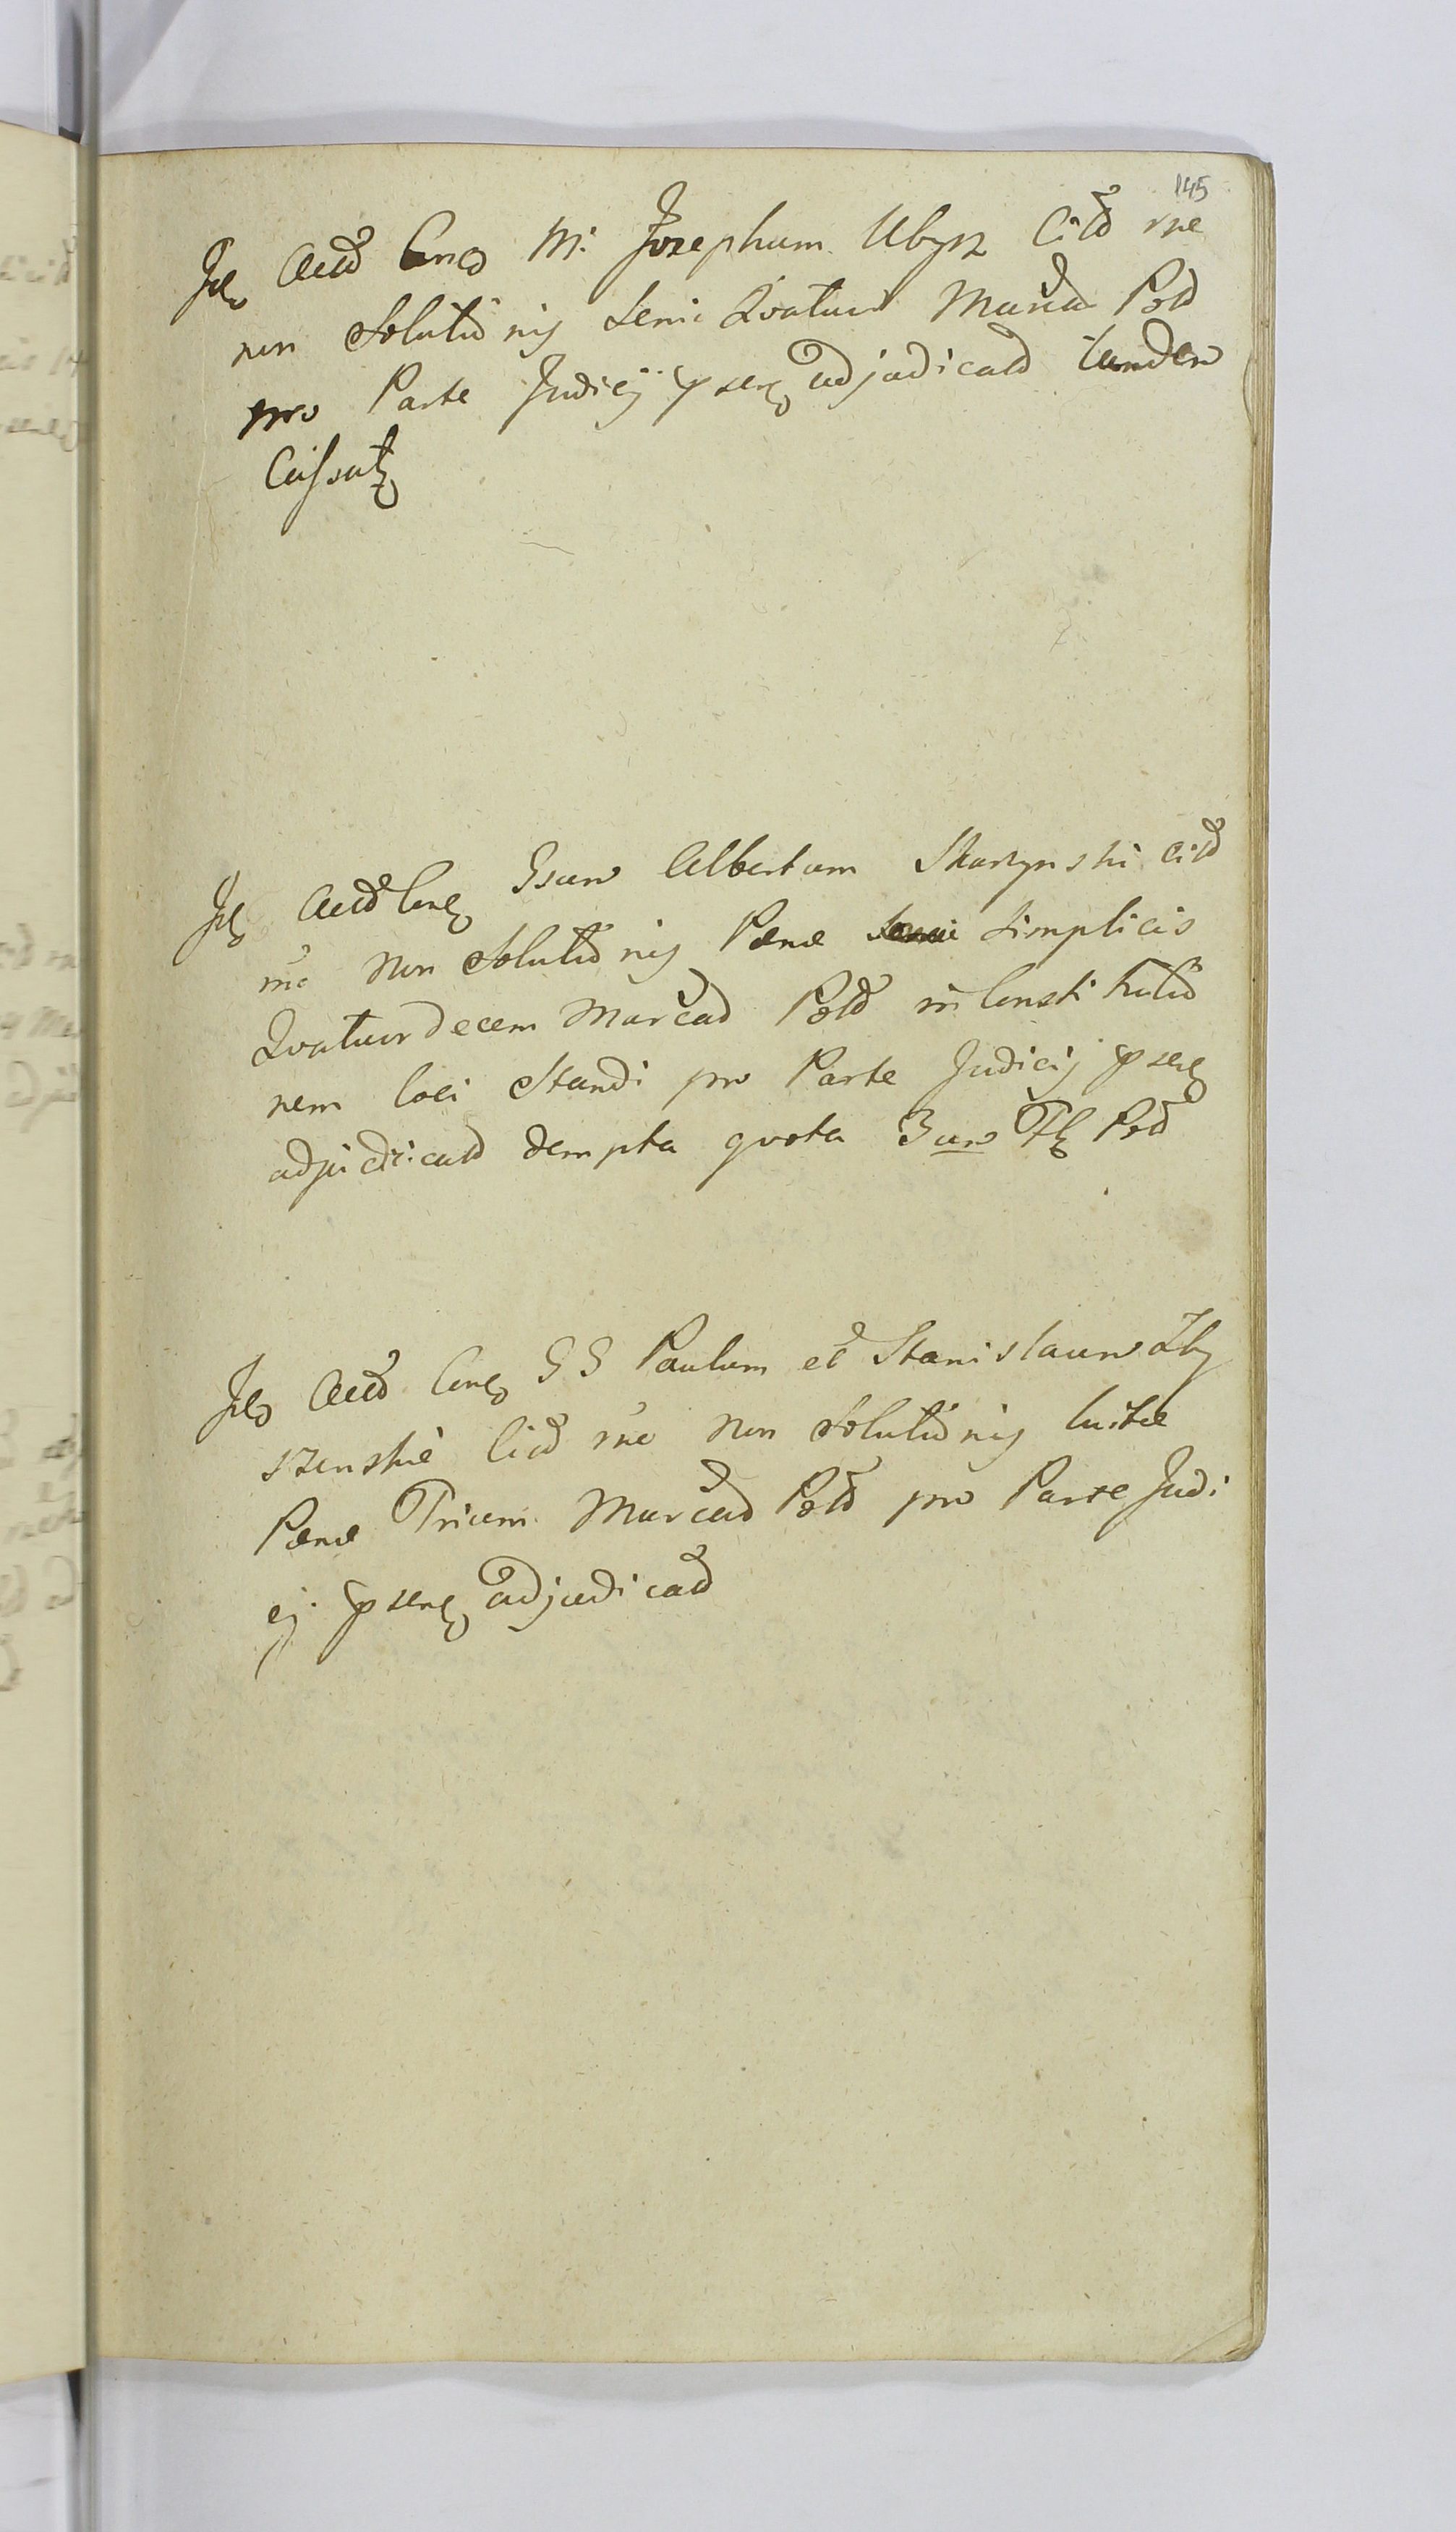 145
Jdę Actd Cną M. Josephum Ubysz Citd rne
non Solutid nis Semi Qvatuor Marcad Pold
pro Parte Judicij ꝑ seng adjudicatd tandem
Cassatę
Jdę Actd Cnę Gsum Albertum Skarzynski Citd
rne non Solutid nis Pæne simplicis
Qvatuordecem Marcad Pold in Constitutid
nem loci Standi pro Parte Judicij ꝑ seng
adjudicatd dempta qvota 3um Fl Pold
Jdę Actd Cnę GG Paulum et Stanislaum Zby
szenskie Citd rne non Solutid nis luitæ
Pæne Tricem Marcad Pold pro Parte Judi
cij ꝑ seng adjudicatd